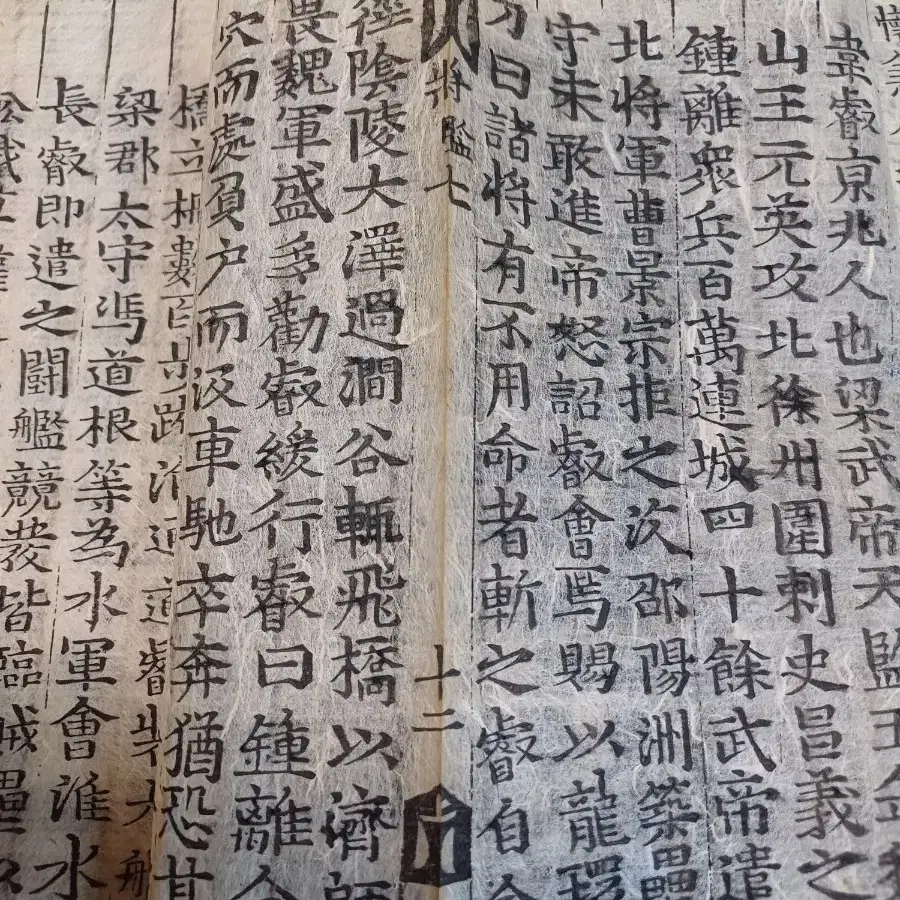 韋睿京兆人也梁武帝天監五年
山王元英攻北徐州圍刺史昌義之
鍾離衆兵百萬連城四十餘武帝遣
北將軍曹景宗拒之次邵陽洲築壘
守未敢進帝怒詔睿會焉賜以龍環
刀曰諸將有不用命者斬之睿自合
將鑑七 十二
徑陰陵大澤過澗谷輒飛橋以濟師
畏魏軍盛多勸睿緩行睿曰鍾離今
穴而處負户而汲車馳卒奔猶恐其
橋立柵數百步跨淮通道睿裝大船
梁郡太守馮道根等為水軍會淮水
長睿即遣之鬪艦競發皆臨賊壘以